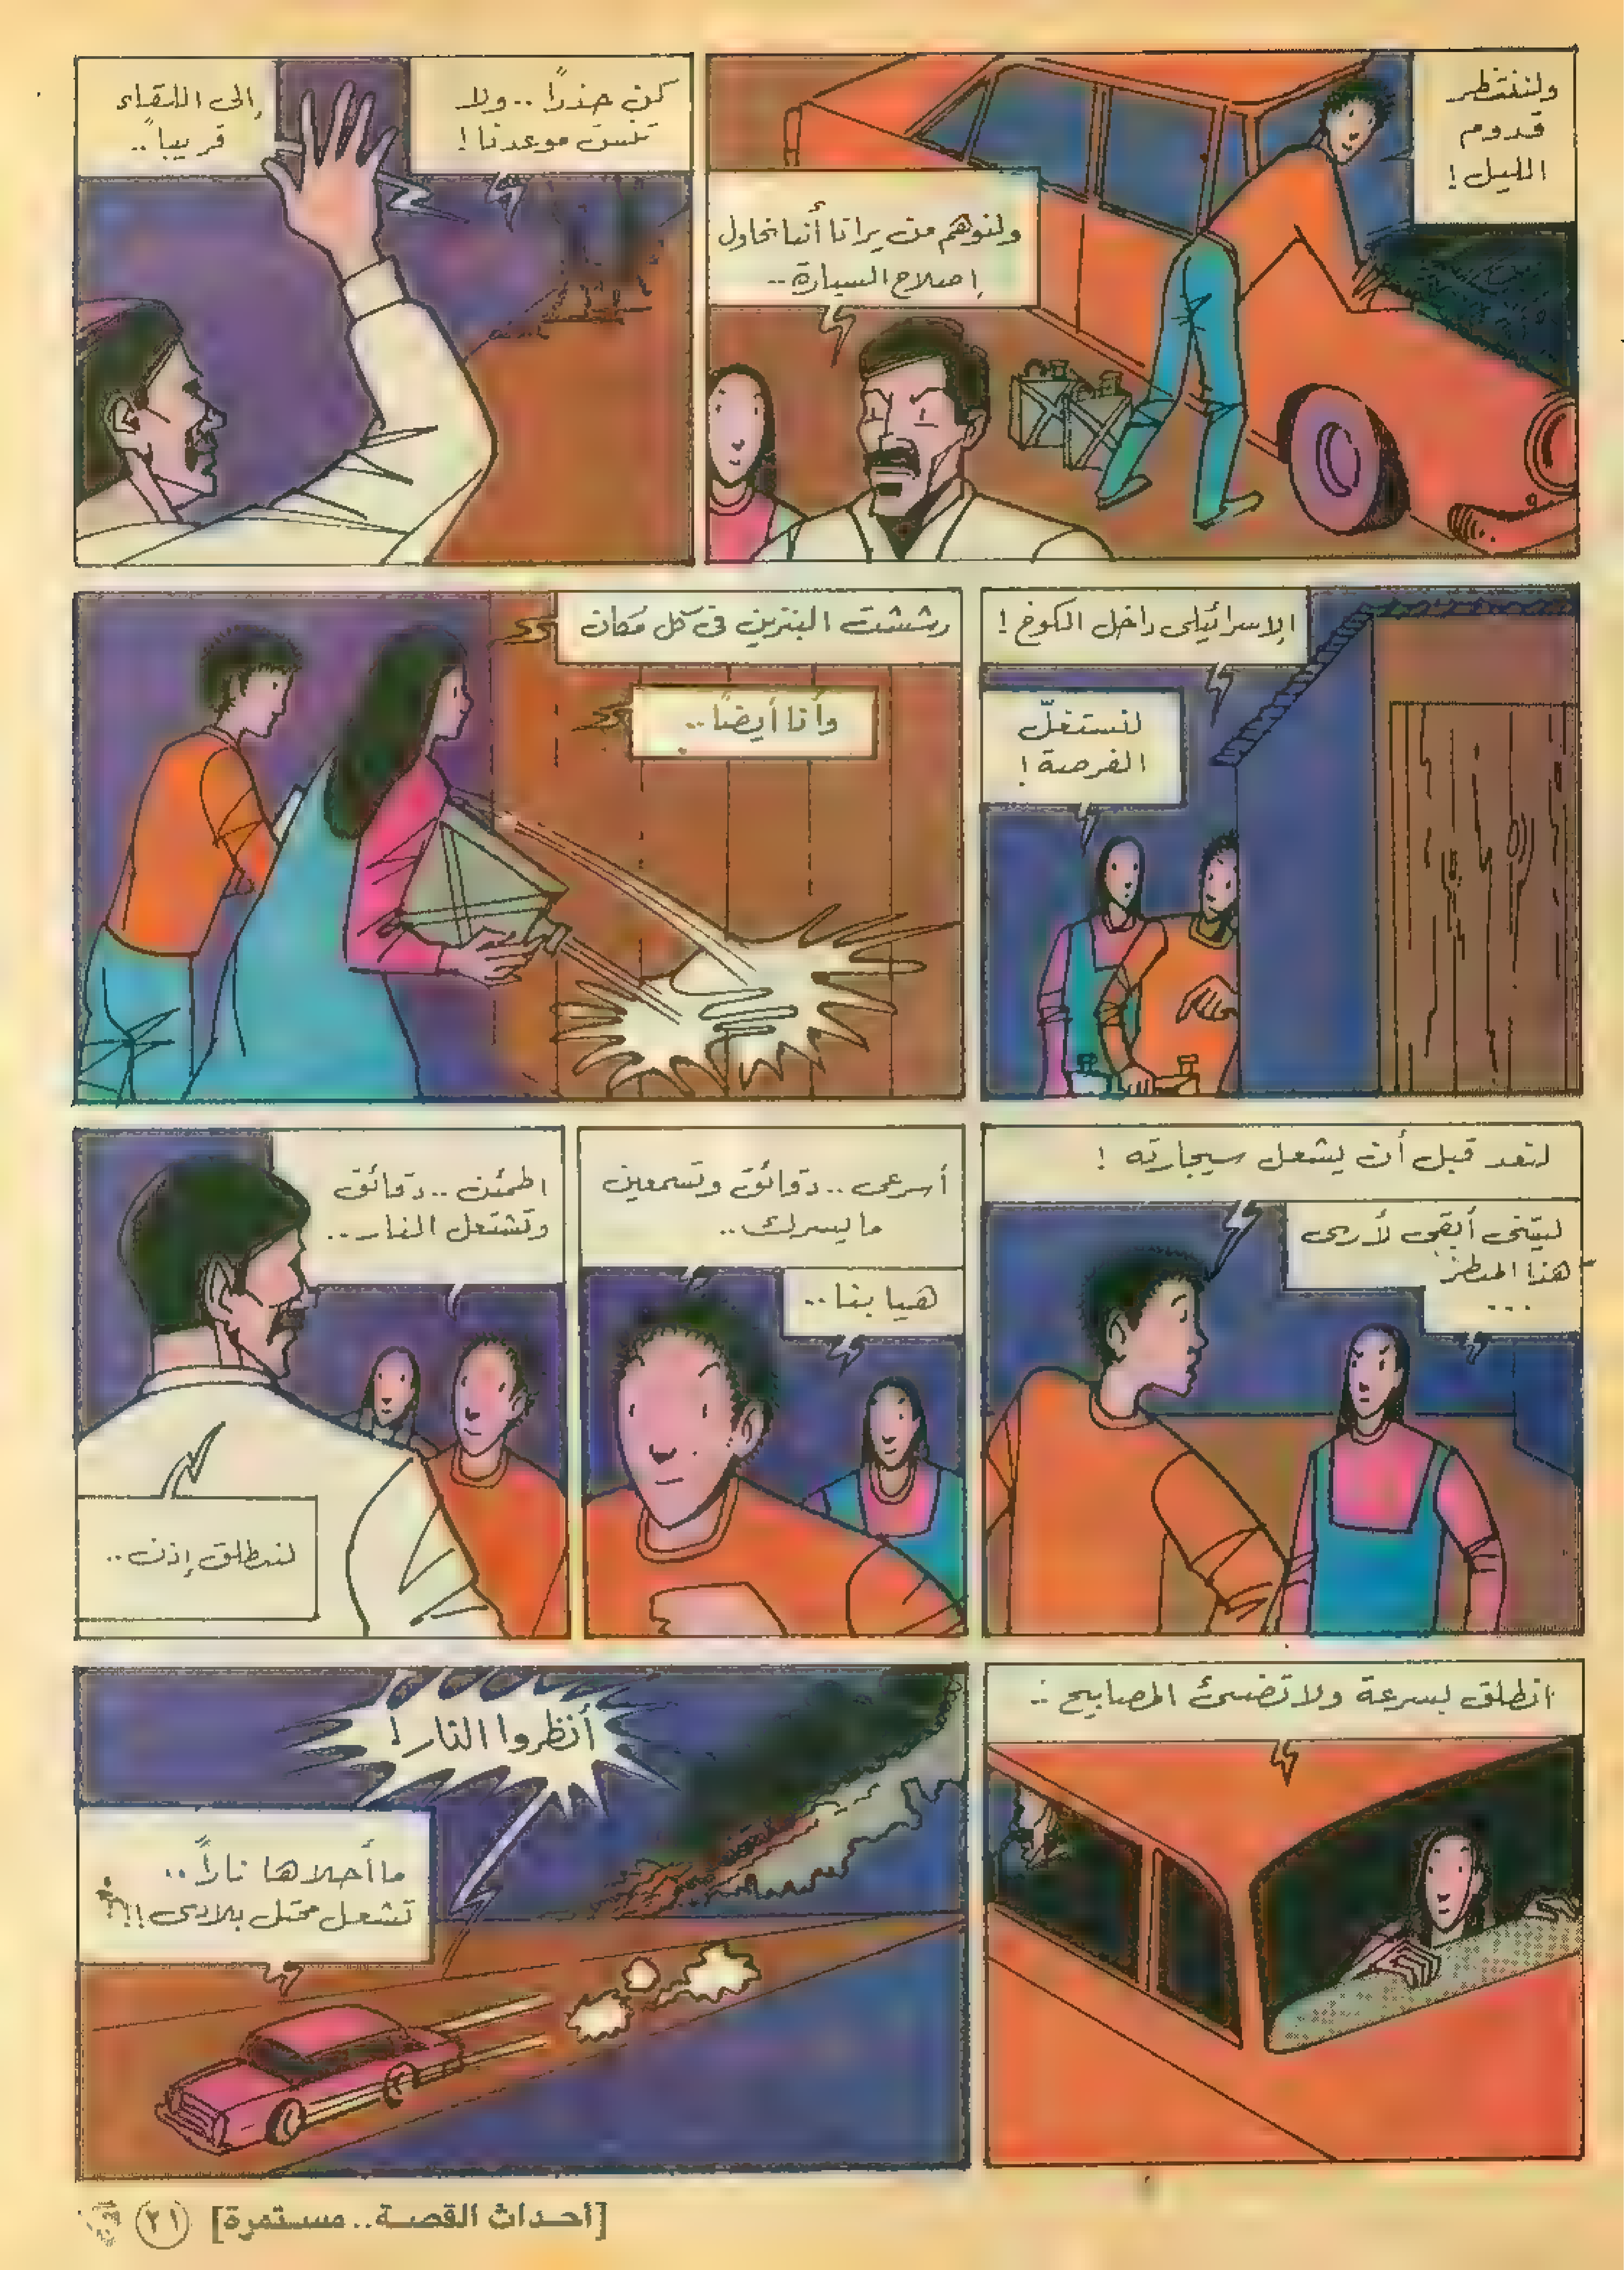 ولننتظر
قدوم
الليل !
ولنوهم من يرانا أننا نحاول
إصلاح السيارة ..
كن حذراً .. ولا
تنس موعدنا !
إلى اللقاء
قريباً ..
الإسرائيلى داخل الكوخ !
لنستغلّ
الفرصة !
رششت البنزين فى كل مكان
وأنا أيضاً ..
لنعد قبل أن يشعل سيجارته !
ليتنى أبقى لأرى
هذا المنظر
...
أسرعى .. دقائق وتسمعين
مايسرك ..
هيا بنا ..
اطمئن .. دقائق
وتشتعل النار ..
لننطلق إذن ..
انطلق بسرعة ولا تضىء المصابيح ..
أنظروا النار !
ما أحلاها ناراً ..
تشعل محتل بلادى !!
[أحداث القصة .. مستمرة]
٢١